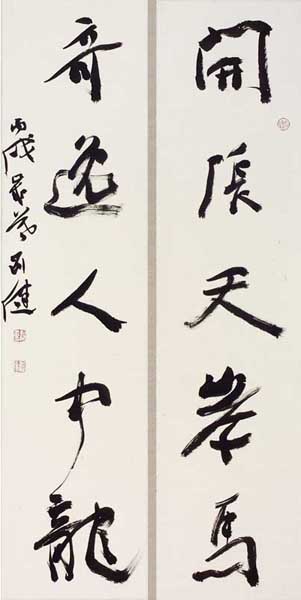 開張天岸馬
奇逸人中龍
丙戌